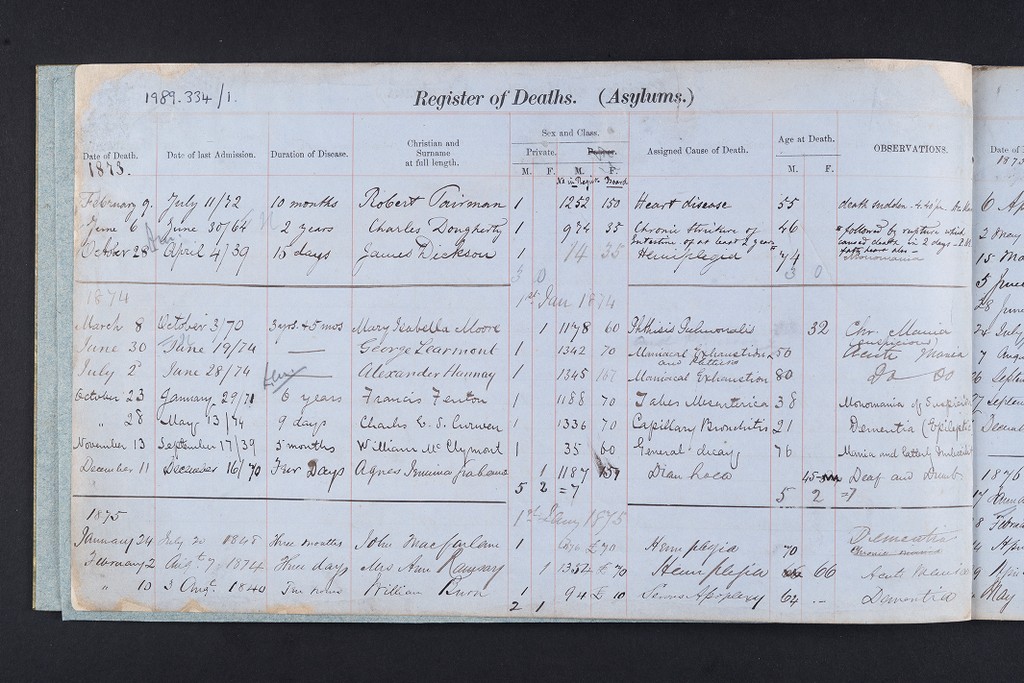 1989.334/1.
Register of Deaths. (Asylums.)
Date of Death. Date of last Admission. Duration of Disease. Christian and Surname at full length. Sex and Class. Private. M. F. Pauper. M. F. Assigned Cause of Death. Age at Death. M. F. OBSERVATIONS.
1873. No in Regist. Board
February 9. July 11/32 10 months Robert Fairman 1 1252 150 Heart disease 55 death sudden 4.40 pm
June 6 June 30/64 2 years Charles Dougherty 1 974 35 Chronic stricture of intestine of at least 2 years 46 followed by rupture which caused death in 2 days
October 28 April 4/39 15 days James Dickson 1 14 35 Hemiplegia 74 fatty heart also Monomania
3 0 3 0
1874 1st Jan 1874
March 8 October 3/70 3 yrs. & 5 mos Mary Isabella Moore 1 1178 60 Phthisis Pulmonalis 32 Chr. Mania
June 30 June 19/74 — George Learmont 1 1342 70 Maniacal Exhaustion and 50 (suspicious) Acute Mania
July 2 June 28/74 — Alexander Hannay 1 1345 167 Maniacal Exhaustion 80 Do Do
October 23 January 29/71 6 years Francis Fenton 1 1188 70 Tabes Mesenterica 38 Monomania of Suspicion
" 28 May 13/74 9 days Charles E. S. Curwen 1 1336 70 Capillary Bronchitis 21 Dementia (Epileptic
November 13 September 17/39 5 months William McClymont 1 35 60 General decay 76 Mania and latterly
December 11 December 16/70 Few Days Agnes Graham 1 1187 Diarrhoea 45 Deaf and Dumb
5 2 =7 5 2 =7
1875 1st Jany 1875
January 24 July 20 1848 Three months John Macfarlane 1 £70 Hemiplegia 70 Dementia
February 2 Augt. 7 1874 Three days Mrs Ann Ramsay 1 1352 £70 Hemiplegia 66 Acute Mania
" 10 3 Augt. 1840 Few hours William Burn 1 94 £10 Serous Apoplexy 64 Dementia
2 1